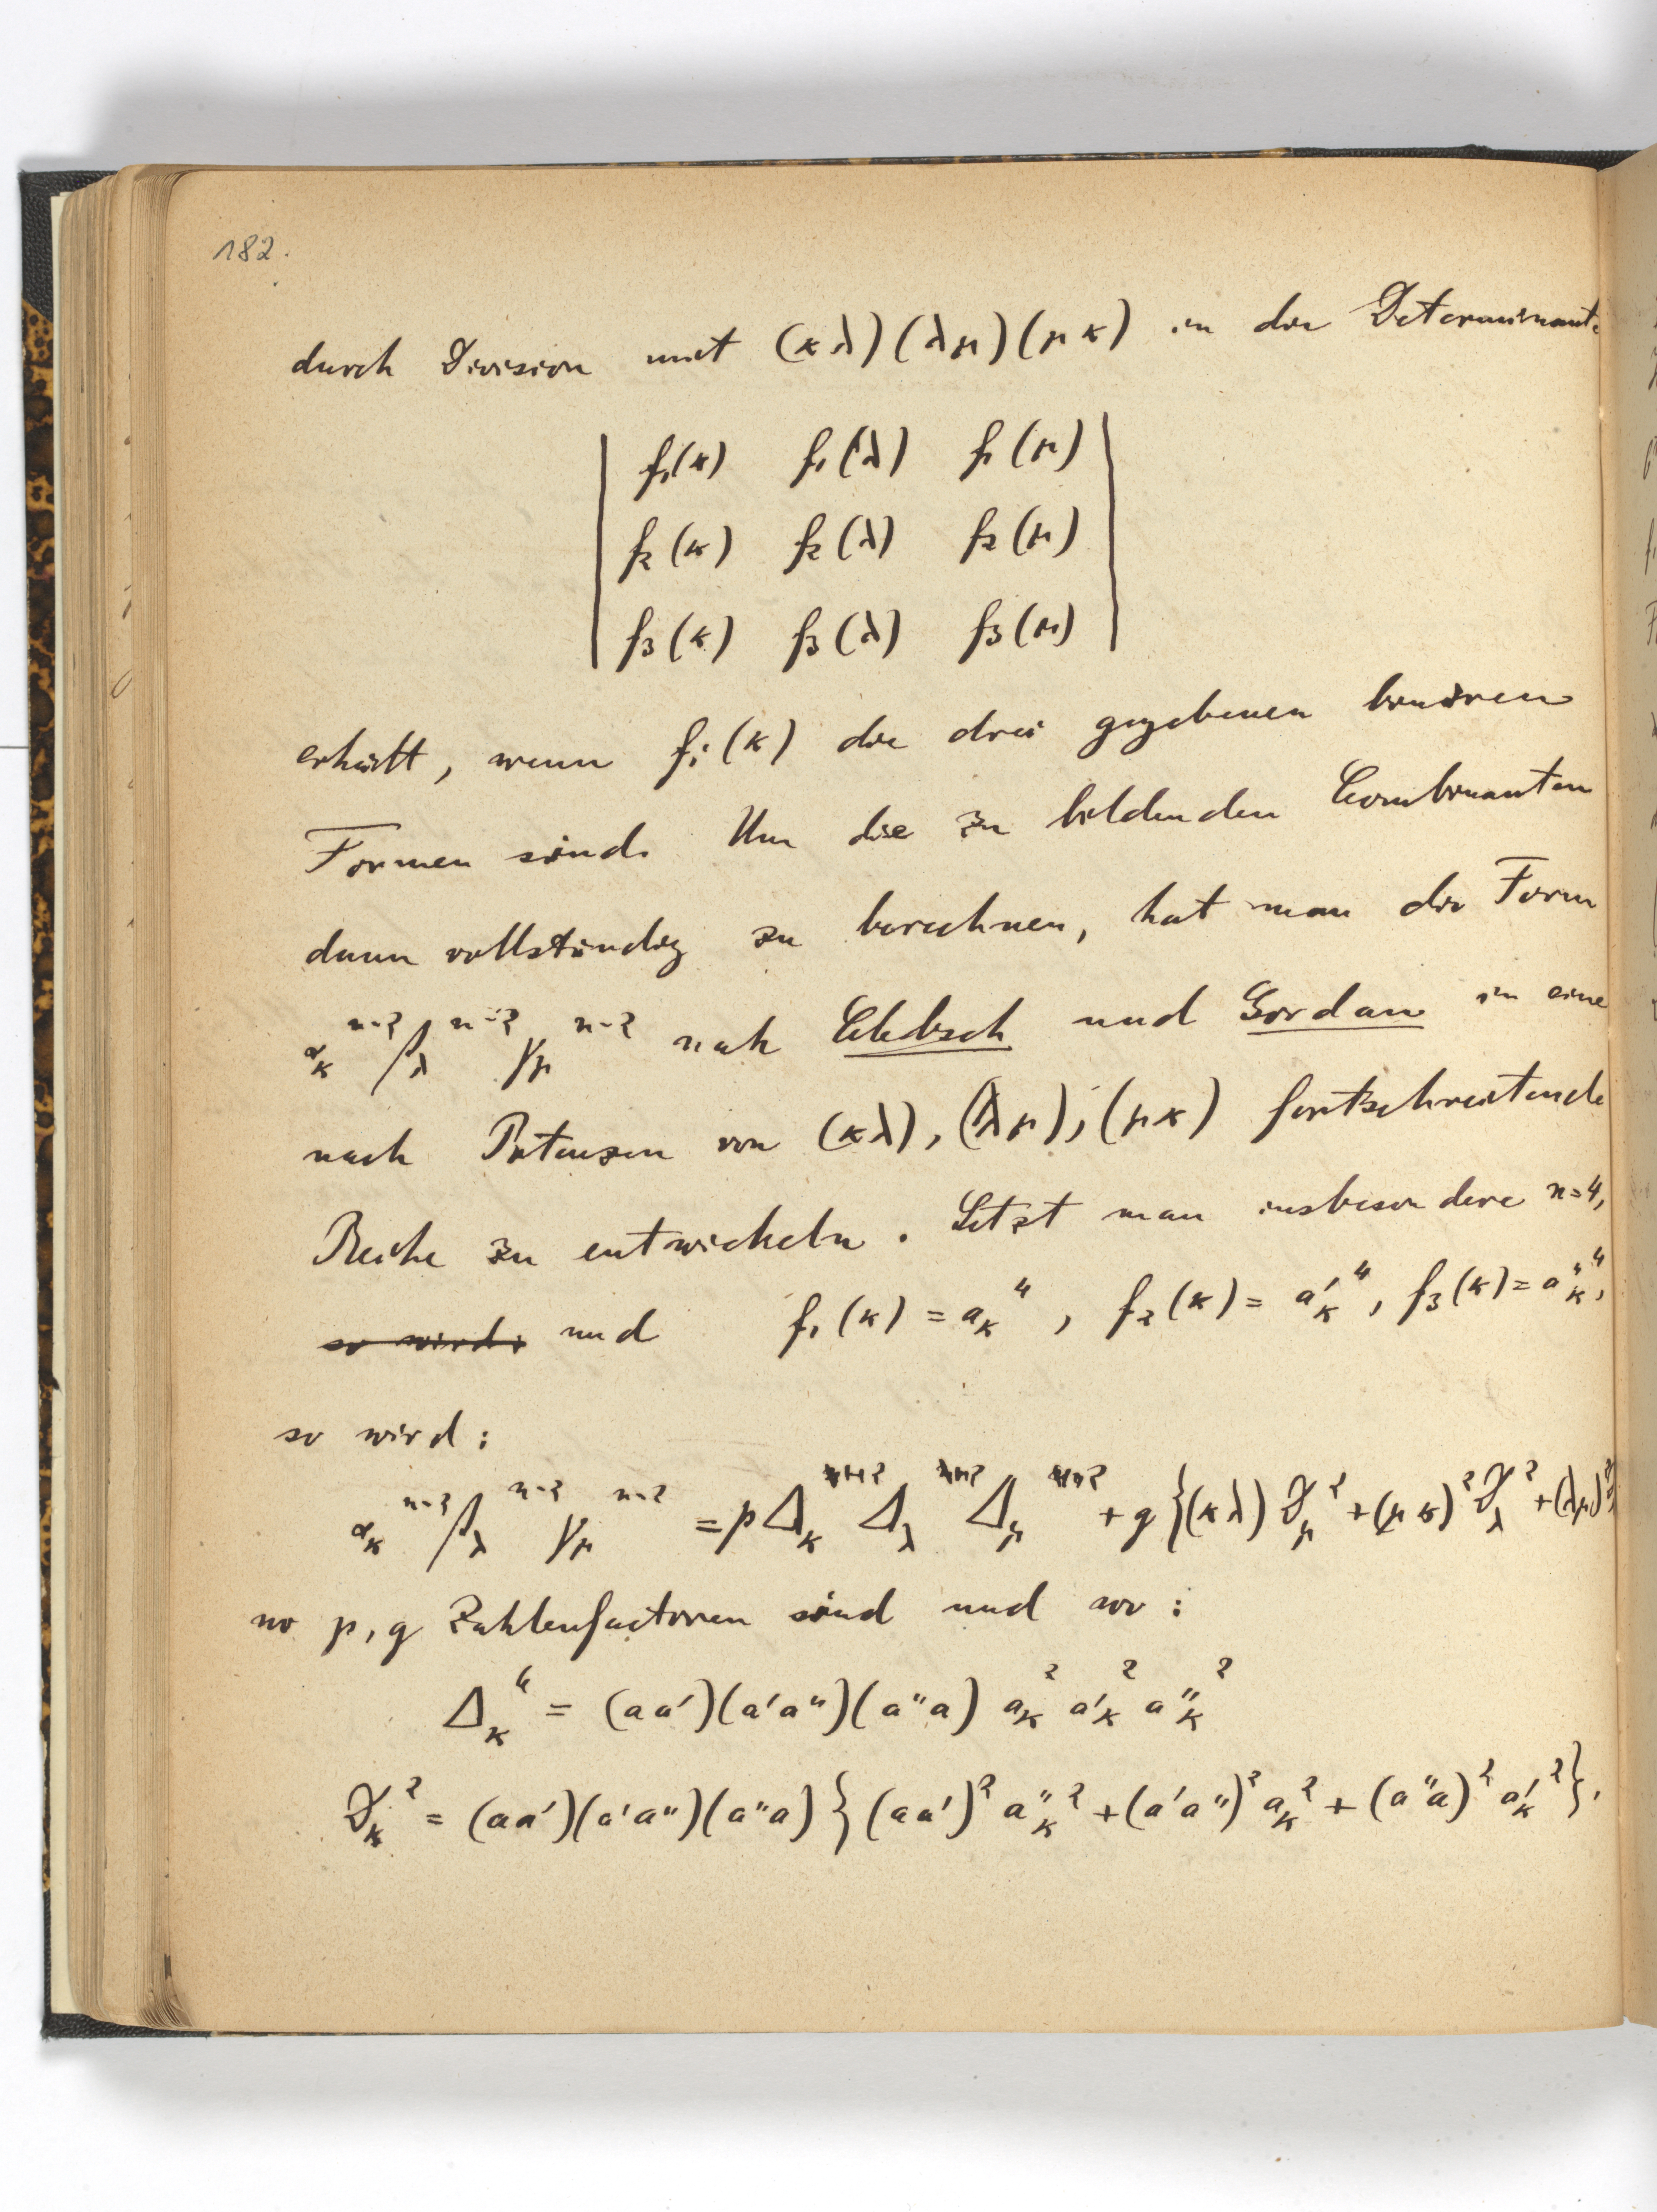 182.
durch Division mit (κλ)(λμ)(μκ) in die Determinante
| f₁(κ) f₁(λ) f₁(μ) |
| f₂(κ) f₂(λ) f₂(μ) |
| f₃(κ) f₃(λ) f₃(μ) |
erhält, wenn fᵢ(κ) die drei gegebenen binären
Formen sind. Um die zu bildenden Combinanten
dann vollständig zu berechnen, hat man die Form
α_κ^{n-2} β_λ^{n-2} γ_μ^{n-2} nach Clebsch und Gordan in eine
nach Potenzen von (κλ), (λμ), (μκ) fortschreitende
Reihe zu entwickeln. Setzt man insbesondere n=4,
so wird: und f₁(κ) = a_κ^4, f₂(κ) = a'_κ^4, f₃(κ) = a''_κ^4,
so wird:
α_κ^{n-2} β_λ^{n-2} γ_μ^{n-2} = p Δ_κ^2 Δ_λ^2 Δ_μ^2 + q {(κλ) ϑ_μ^2 + (μκ)^2 ϑ_λ^2 + (λμ)^2
wo p, q Zahlenfactoren sind und wo:
Δ_κ^6 = (aa')(a'a'')(a''a) a_κ^2 a'_κ^2 a''_κ^2
ϑ_κ^2 = (aa')(a'a'')(a''a) {(aa')^2 a''_κ^2 + (a'a'')^2 a_κ^2 + (a''a)^2 a'_κ^2}.